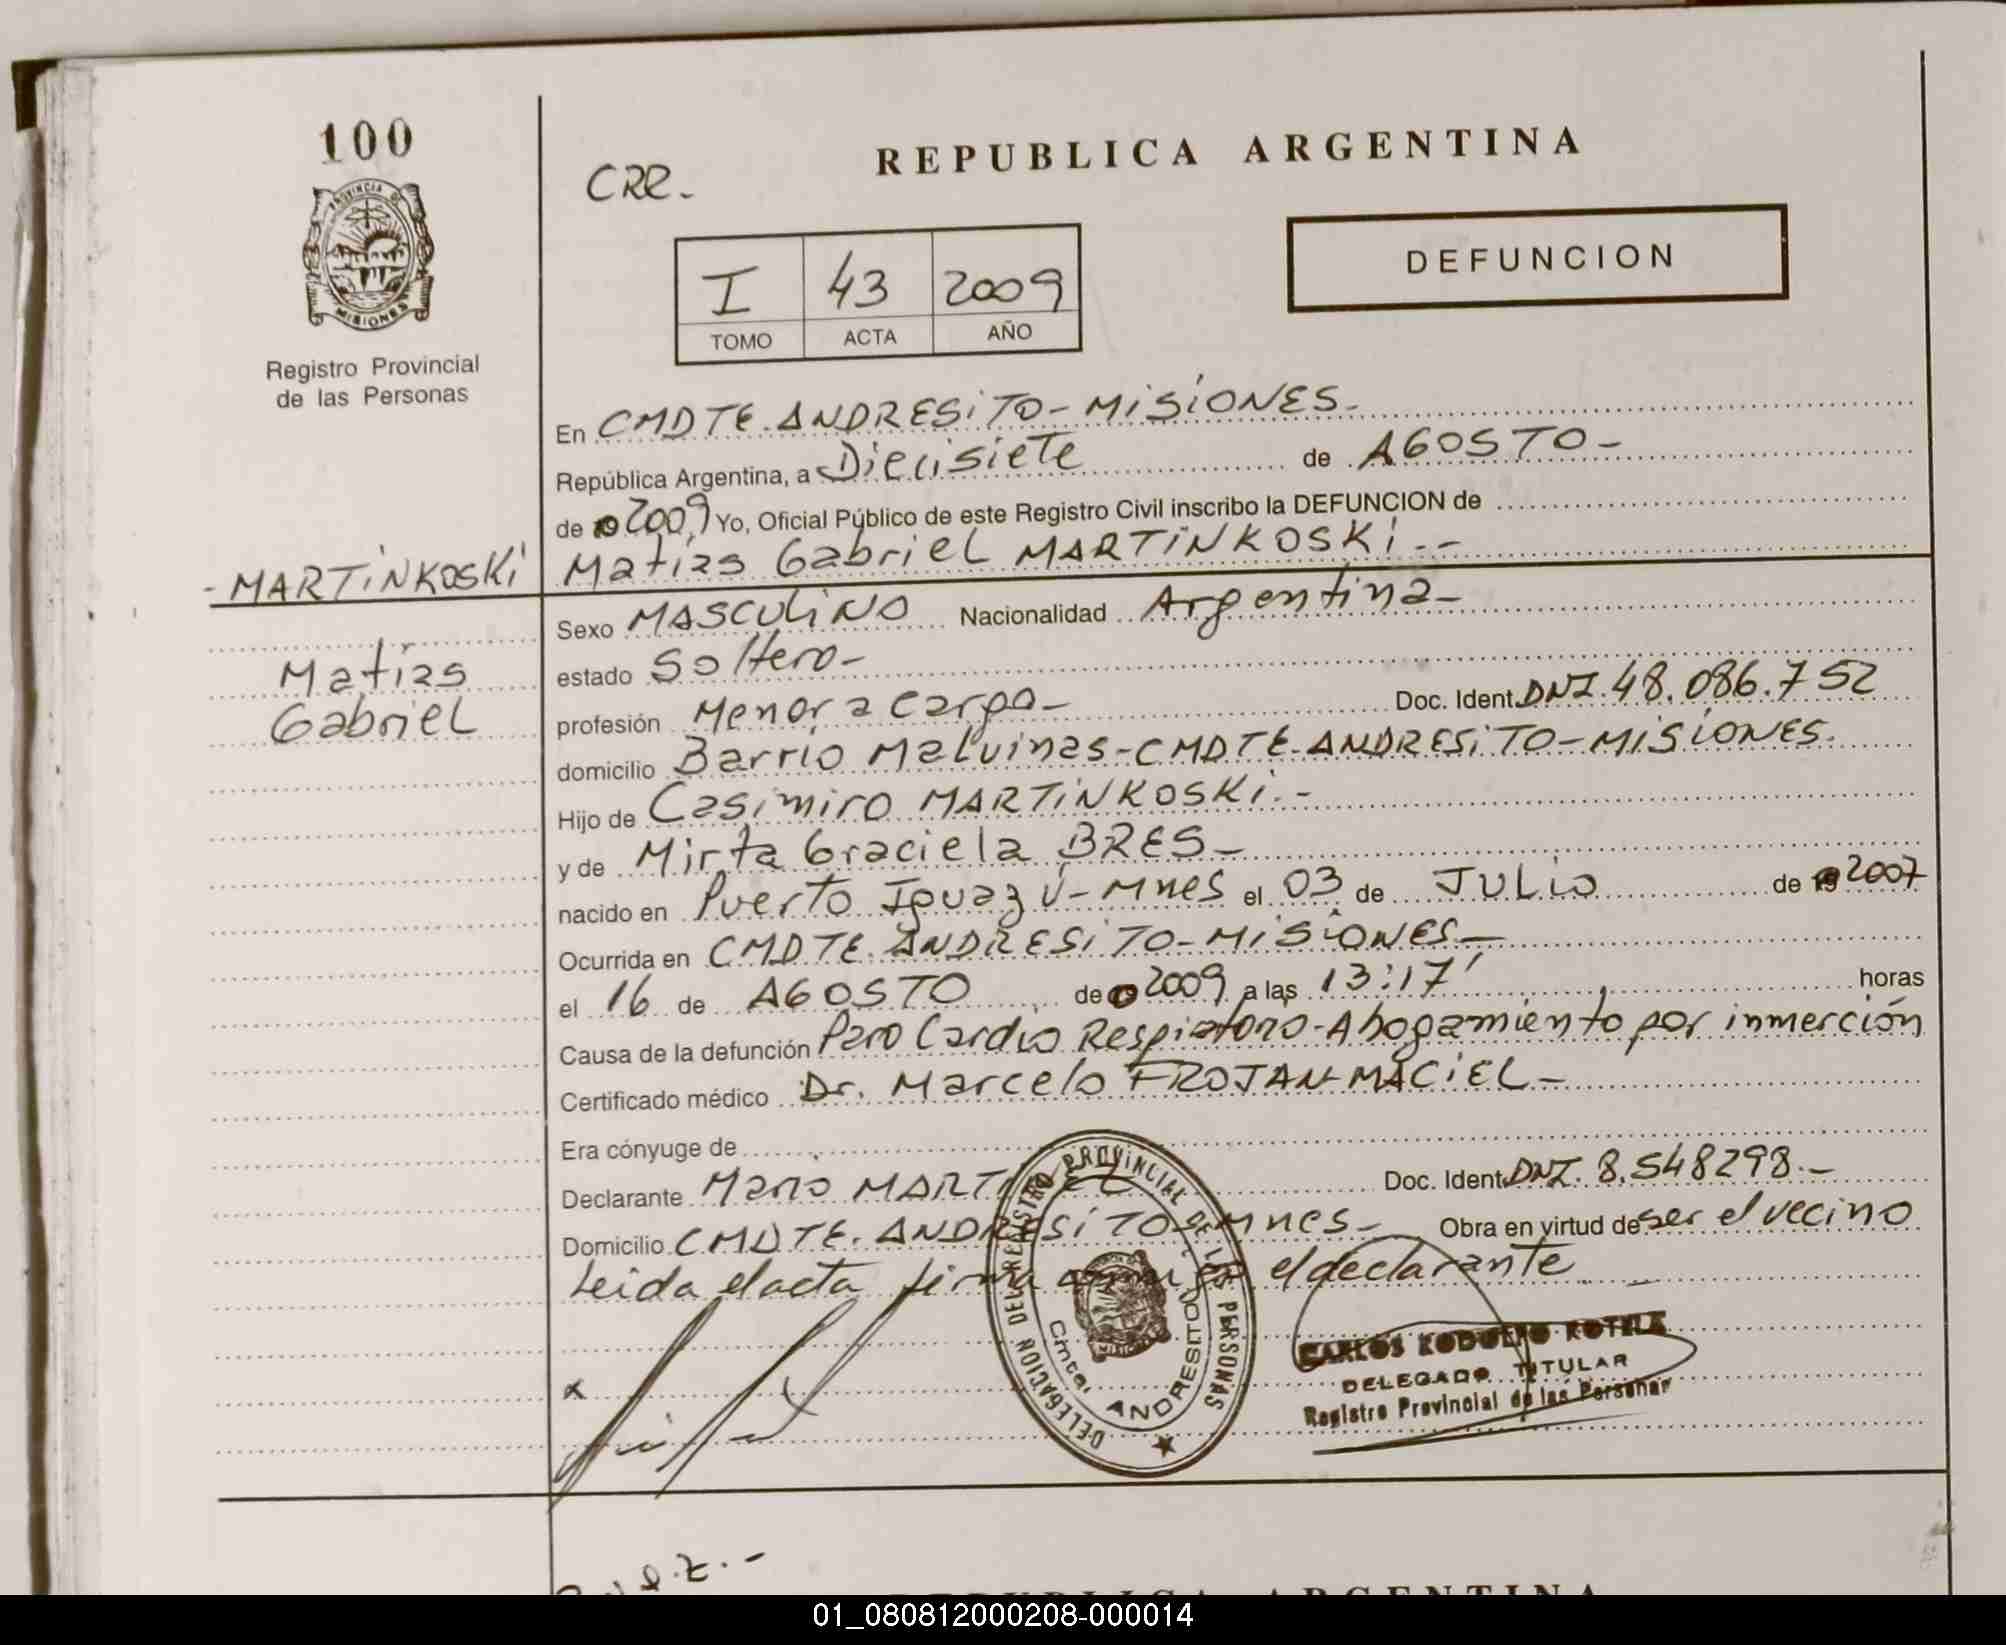 100
PROVINCIA DE
MISIONES
Registro Provincial
de las Personas
CRR-
REPUBLICA ARGENTINA
I 43 2009
TOMO ACTA AÑO
DEFUNCION
En CMDTE. ANDRESITO - MISIONES-
República Argentina, a Diecisiete de AGOSTO-
de 2009 Yo, Oficial Público de este Registro Civil inscribo la DEFUNCION de
-MARTINKOSKI Matías Gabriel MARTINKOSKI.--
Sexo MASCULINO Nacionalidad Argentina-
Matías
Gabriel
estado Soltero-
profesión Menor a cargo- Doc. Ident. DNI. 48.086.752
domicilio Barrio Malvinas-CMDTE-ANDRESITO-MISIONES.
Hijo de Casimiro MARTINKOSKI.-
y de Mirta Graciela BRES-
nacido en Puerto Iguazú-Mnes el 03 de JULIO de 2007
Ocurrida en CMDTE. ANDRESITO-MISIONES-
el 16 de AGOSTO de 2009 a las 13:17' horas
Causa de la defunción Paro Cardio Respiatorio-Ahogamiento por inmerción
Certificado médico Dr. Marcelo FROJAN-MACIEL-
Era cónyuge de
Declarante Mario MART Doc. Ident. DNI. 8.548298.-
Domicilio CMDTE. ANDRESITO-Mnes- Obra en virtud de ser el vecino
Leida el acta firma el declarante
x
DELEGACION DEL REGISTRO PROVINCIAL DE LAS PERSONAS
Cmte. ANDRESITO
CARLOS KOTELA
DELEGADO TITULAR
Registro Provincial de las Personas
REPUBLICA ARGENTINA
01_080812000208-000014